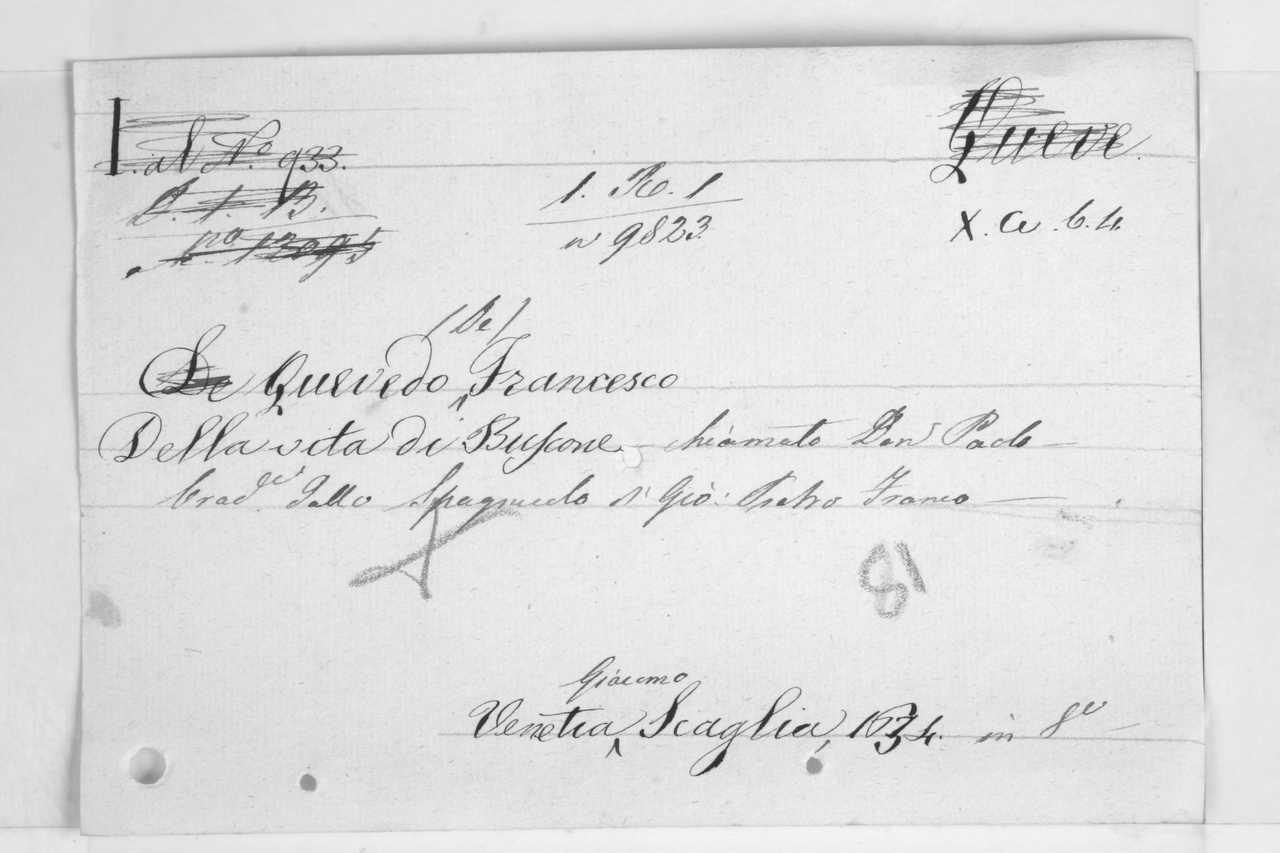 I. al No. 933. Queve.
1. R. 1
B. 1. B.
n 9823. X. a. 6. 4.
no 13095
(De)
De Quevedo Francesco
Della vita di Buscone chiamato Don Paolo
trad.e dallo Spagnuolo di Gio: Pietro Franco
18
Giacomo
Venetia, Scaglia, 1634. in 8o